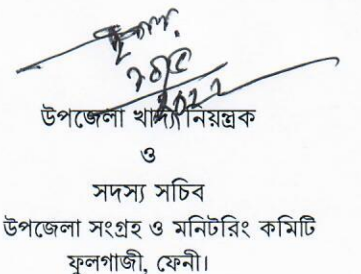 উপজেলা খাদ্য নিয়ন্ত্রক
ও
সদস্য সচিব
উপজেলা সংগ্রহ ও মনিটরিং কমিটি
ফুলগাজী, ফেনী।